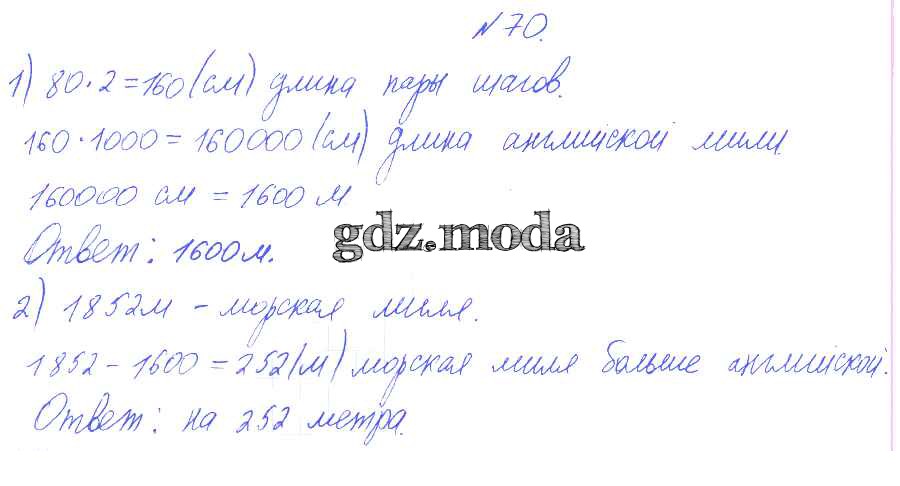 №70.
1) 80·2=160(см) длина пары шагов.
160·1000=160000(см) длина английской мили
160000 см = 1600 м
Ответ: 1600м.
gdz.moda
2) 1852м - морская миля.
1852-1600=252(м) морская миля больше английской.
Ответ: на 252 метра.